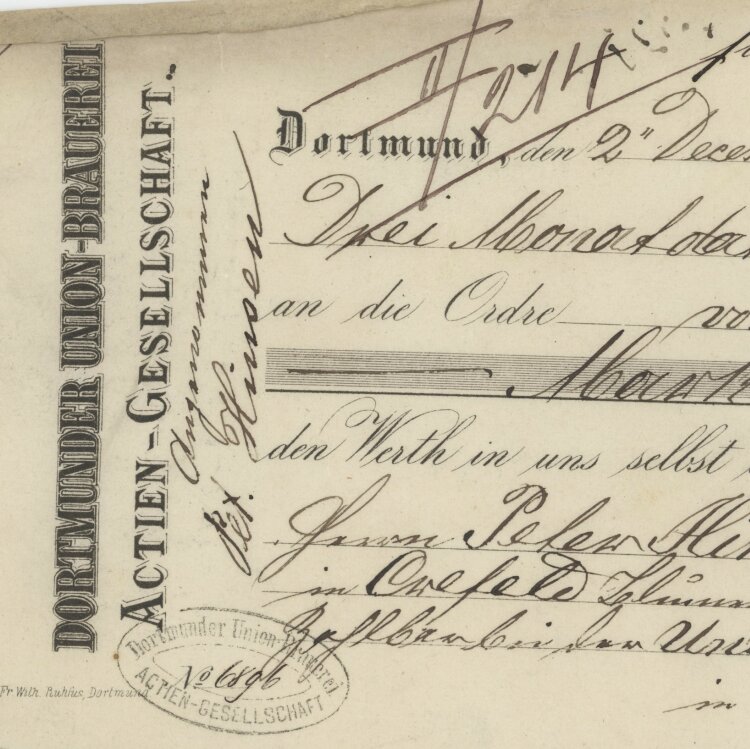 DORTMUNDER UNION-BRAUEREI
ACTIEN-GESELLSCHAFT.
Angenommen
Pet. Hinsen
II 214
Dortmund, den 2" Dece
Drei Monat da
an die Ordre vo
Mark
den Werth in uns selbst
Herrn Peter Hin
in Crefeld
Zahlbar bei der Un
in
Dortmunder Union-Brauerei
No 6896
ACTIEN-GESELLSCHAFT
Fr. Wilh. Ruhfus, Dortmund